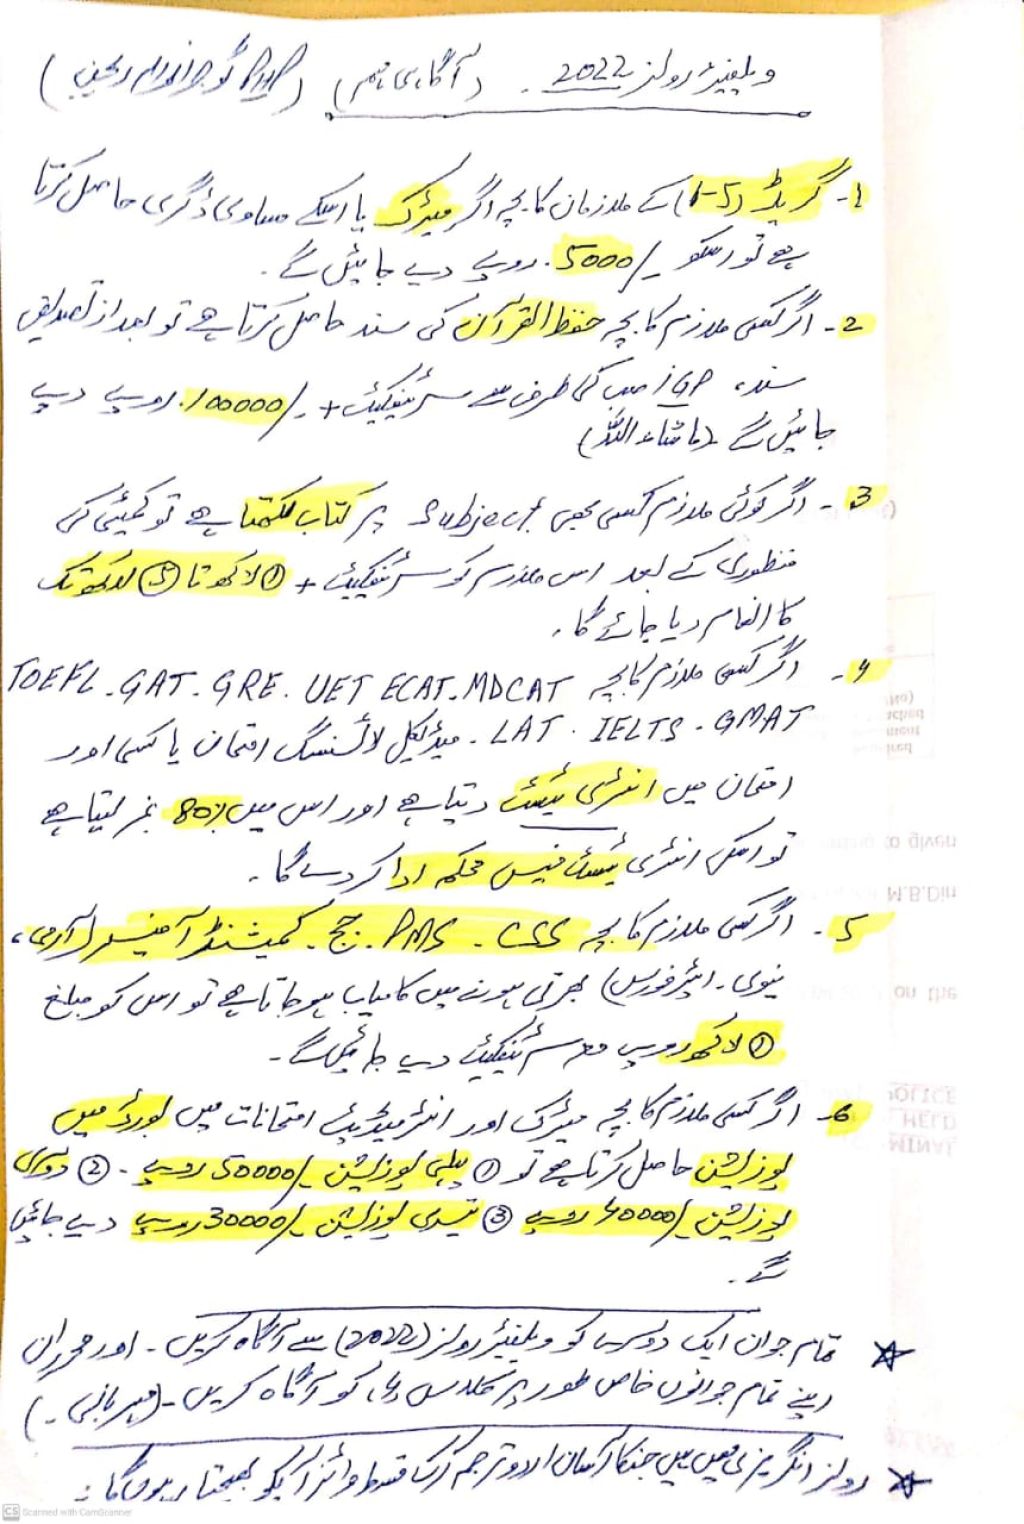 ویلفیئر رولز 2022 ۔ (آگاہی مہم)
1- گریڈ (1-5) کے ملازمان کا بچہ اگر میٹرک یا اسکے مساوی ڈگری حاصل کرتا
ہے تو اسکو 5000/- روپے دیے جائیں گے ۔
2- اگر کسی ملازم کا بچہ حفظ القرآن کی سند حاصل کرتا ہے تو بعد از تصدیق
سند، IGP صاحب کی طرف سے سرٹیفکیٹ + 100000/- روپے دیے
جائیں گے (ماشاءاللہ)
3- اگر کوئی ملازم کسی بھی Subject پر کتاب لکھتا ہے تو کمیٹی کی
منظوری کے بعد اس ملازم کو سرٹیفکیٹ + ① لاکھ تا ③ لاکھ تک
کا انعام دیا جائے گا ۔
4- اگر کسی ملازم کا بچہ TOEFL . GAT . GRE . UET ECAT . MDCAT
LAT . IELTS . GMAT ۔ میڈیکل لائسنسنگ امتحان یا کسی اور
امتحان میں انٹری ٹیسٹ دیتا ہے اور اس میں 80% نمبر لیتا ہے
تو اسکی انٹری ٹیسٹ فیس محکمہ ادا کر دے گا ۔
5- اگر کسی ملازم کا بچہ CSS ۔ PMS ۔ جج ۔ کمیشنڈ آفیسر (آرمی،
نیوی ۔ ایئرفورس) بھرتی ہونے میں کامیاب ہو جاتا ہے تو اس کو مبلغ
① لاکھ روپے معہ سرٹیفکیٹ دیے جائیں گے ۔
6- اگر کسی ملازم کا بچہ میٹرک اور انٹرمیڈیٹ امتحانات میں بورڈ میں
پوزیشن حاصل کرتا ہے تو ① پہلی پوزیشن 50000/- روپے ۔ ② دوسری
پوزیشن 40000/- روپے ③ تیسری پوزیشن 30000/- روپے دیے جائیں
گے ۔
☆ تمام جوان ایک دوسرے کو ویلفیئر رولز (2022) سے آگاہ کریں ۔ اور محرران
اپنے تمام جوانوں خاص طور پر کلاس فور کو آگاہ کریں ۔ (مہربانی ۔)
☆ رولز انگریزی میں ہیں جنکا آسان اردو ترجمہ کرکے قسط وائز آپکو بھیجتا رہوں گا ۔
CS Scanned with CamScanner